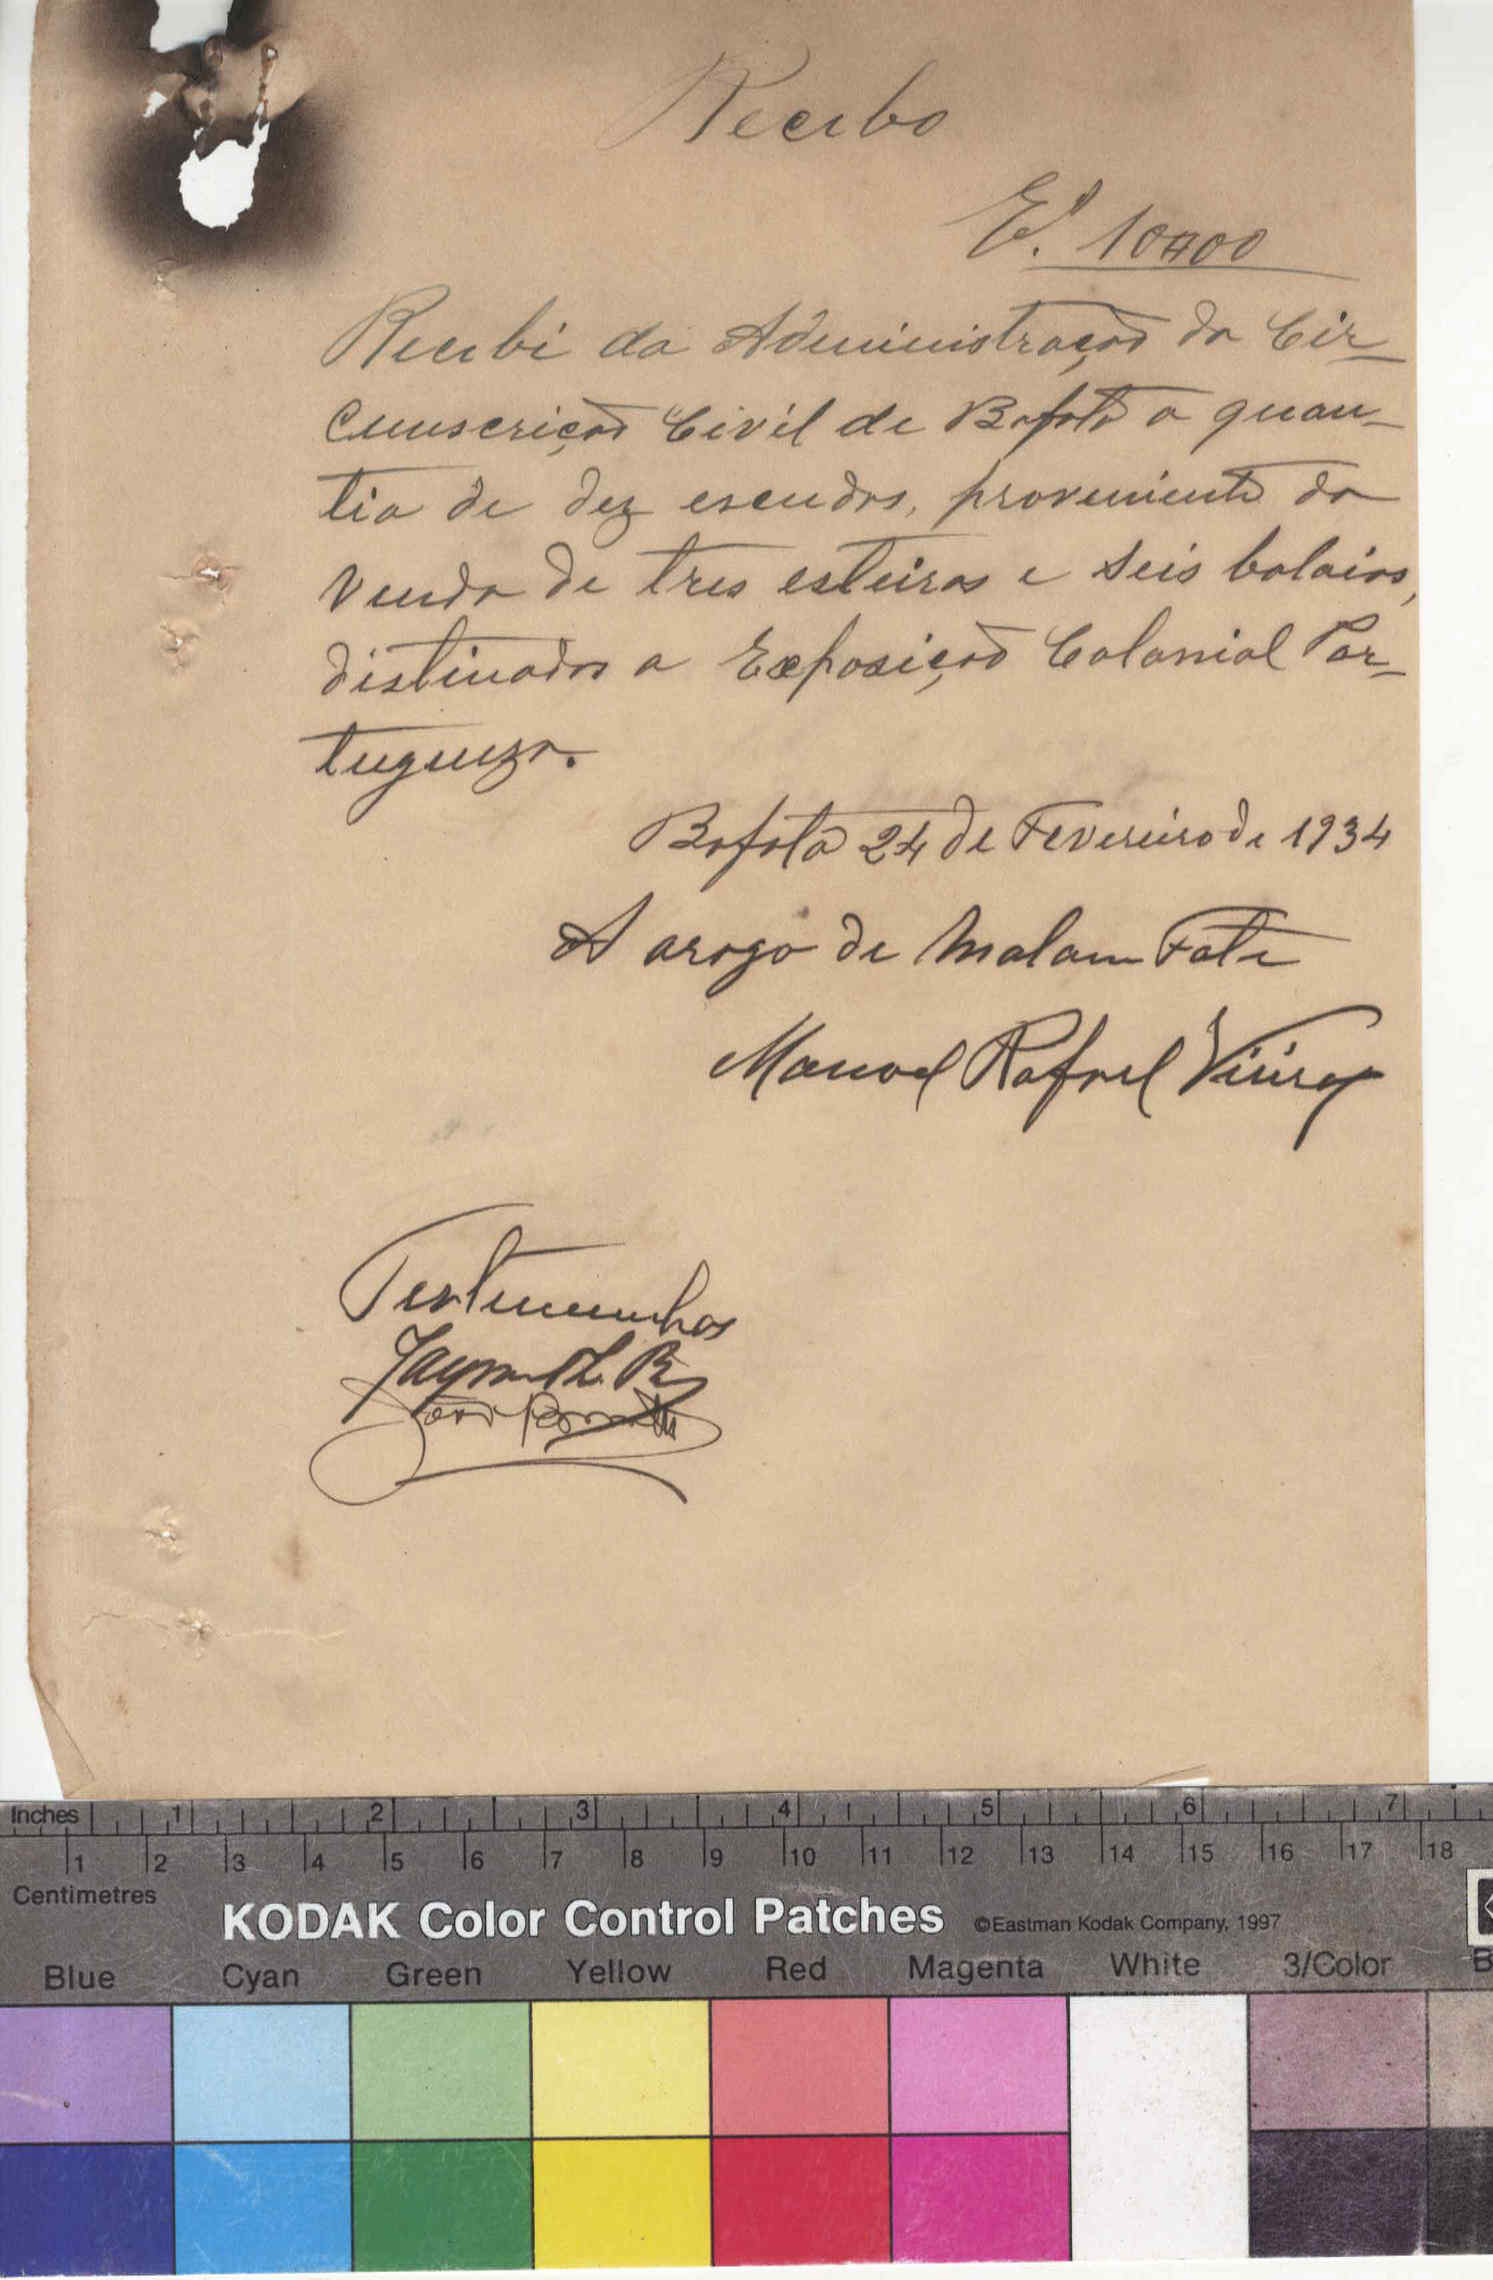 Recibo
E.º 10$00
Recebi da Administração da Cir-
cunscrição Civil de Bafatá a quan-
tia de dez escudos, proveniente da
venda de tres esteiras e seis balaios,
distinados a Exposição Colonial Por-
tugueza.
Bafatá 24 de Fevereiro de 1934
A arogo de Malam Fati
Manoel Rafael Vieira
Testemunhas
Inches 1 2 3 4 5 6 7
1 2 3 4 5 6 7 8 9 10 11 12 13 14 15 16 17 18
Centimetres
KODAK Color Control Patches ©Eastman Kodak Company, 1997
Blue Cyan Green Yellow Red Magenta White 3/Color B